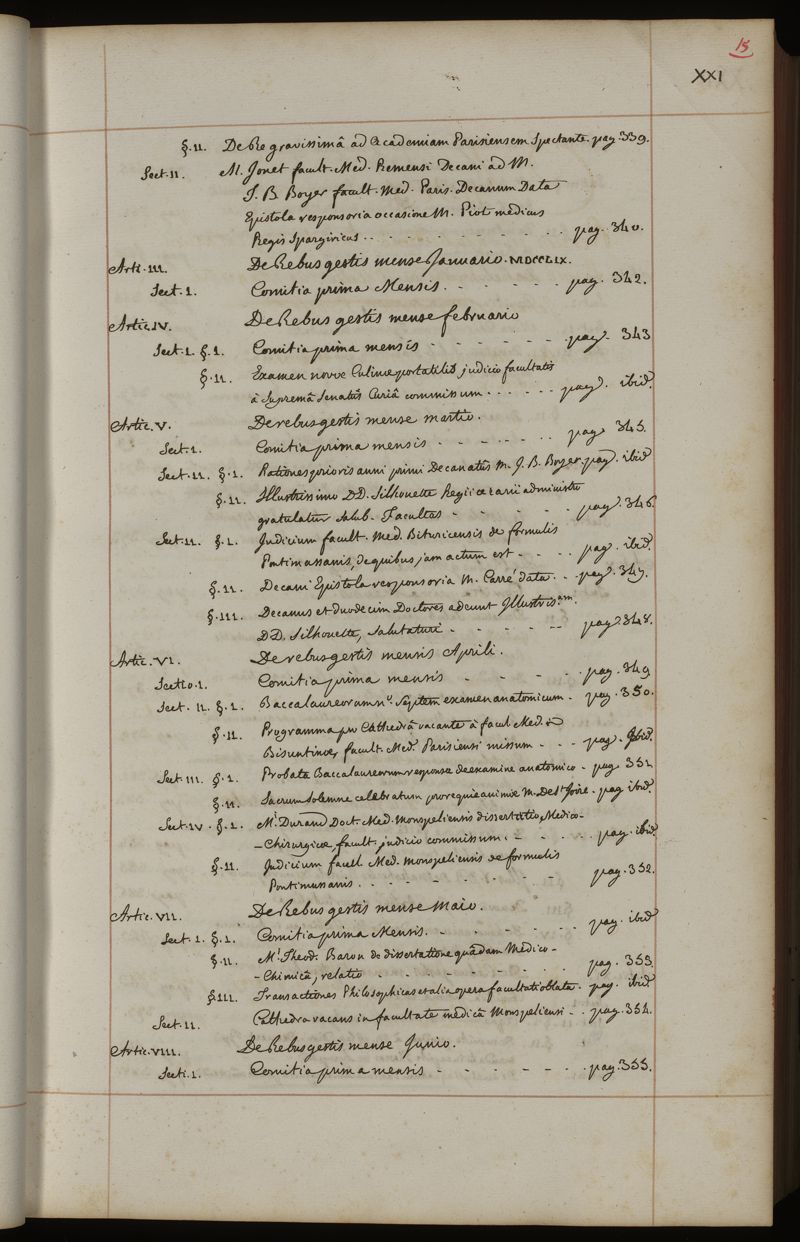 15
XXI
§. II. De Re gravissimâ ad Academiam Parisiensem Spectante. pag. 339.
Sect. II. M. Jonet facult. Med. Remensi Decani ad M.
J. B. Boyer facult. Med. Paris. Decanum Data
Epistola responsoria occasione M. Piot medicus
Regis Spargiricus . . - - - - - - - . . pag. 340.
Arti. III. De Rebus gestis mense Januario. MDCCLIX.
Sect. I. Comitia prima Mensis . - - - - - pag. 342.
Artic. IV. De Rebus gestis mense februario
Sect. I. §. I. Comitia prima mensis - - - - - - pag. 343
§. II. Examen novæ Culinæ portatilis judicio facultatis
a Supremâ Senatûs Curiâ commissum - - - . . . pag. ibid.
Artic. V. De rebus gestis mense martio.
Sect. I. Comitia prima mensis - - - - - . . pag 345.
Sect. II. §. I. Rationes prioris anni primi Decanatûs M. J. B. Boyer. pag. ibid
§. II. Illustrissimo DD. Silhouette Regii ærarii administro
gratulatur Salub. Facultas - - - - - pag. 346.
Sect. II. §. I. Judicium facult. Med. Bituricensis de formulis
Pontimussanis, de quibus jam actum est - - - . pag. ibid.
§. II. Decani Epistola responsoria M. Carré data. . - pag. 347.
§. III. Decanus et duodecim Doctores adeunt Illustriss.am.
DD. Silhouette, salutaturi . - - - -- pag. 348.
Artic. VI. De rebus gestis mensis Aprili.
Sectio. I. Comitia prima mensis - - - - . pag. 349
Sect. II. §. I. Baccalaureorum n.º Septem examen anatomicum - pag. 350.
§. II. Programma pro Cathedrâ vacante à facul Med.
Bisuntinæ, facult. Med.æ Parisiensi missum - - - pag. Ibid.
Sect III. §. I. Probata Baccalaureorum response de examine anatomico - pag 351
§. II. Sacrum solemne celebratum pro requie animæ M. De St. Yoire - pag ibid.
Sect. IV. §. I. M.r Durand Doct. Med. Monspeliensis dissertatio Medico-
-Chirurgicæ, facult. judicio commissum. - - - - pag. ibid
§. II. Judicium facult. Med. Monspeliensis de formulis
Pontimussanis. - - - - - - - - pag. 352.
Artic. VII. De Rebus gestis mense Maio.
Sect. I. §. I. Comitia prima Mensis. - - - - - - pag. ibid
§. II. M.r Theod. Baron de dissertatione quâdam Medico-
-Chimicâ, relatio - - - - - - - . pag. 353.
§. III. Transactiones Philosophicas et alia opera facultati oblata. pag. ibid
Sect. II. Cathedra vacans in facultate medicâ Monspeliensi - . pag. 354.
Artic. VIII. De Rebus gestis mense Junio.
Secti. I. Comitia prima mensis - - - - - . . pag. 355.